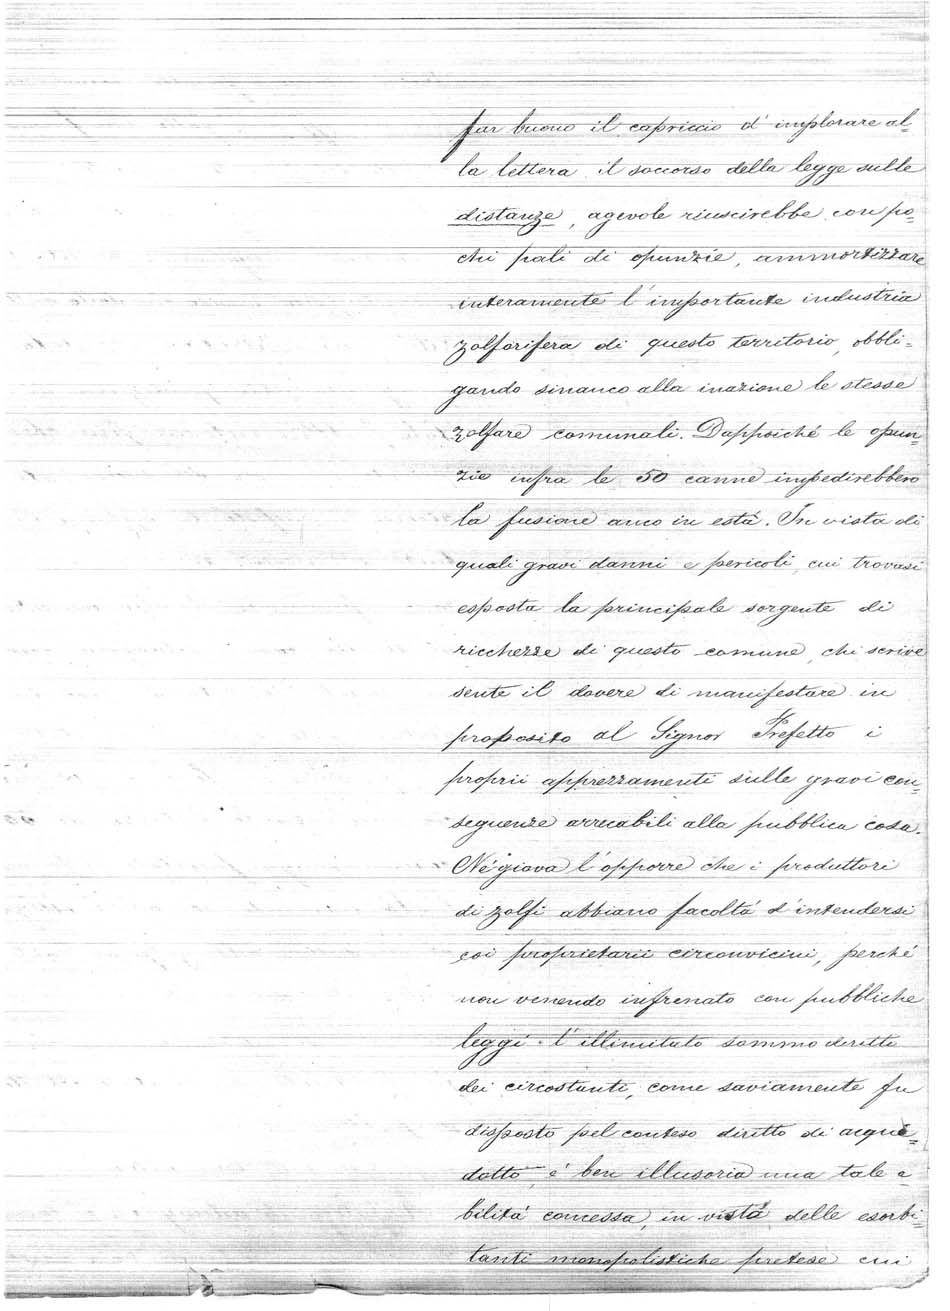 far buono il capriccio d'implorare al=
la lettera il soccorso della legge sulle
distanze, agevole riuscirebbe con po=
chi pali di opunzie, ammortizzare
interamente l'importante industria
zolforifera di questo territorio, obbli=
gando sinanco alla inazione le stesse
zolfare comunali. Dappoiché le opun=
zie infra le 50 canne impedirebbero
la fusione anco in està. In vista di
quali gravi danni e pericoli, cui trovasi
esposta la principale sorgente di
ricchezze di questo comune, chi scrive
sente il dovere di manifestare in
proposito al Signor Prefetto i
proprii apprezzamenti sulle gravi con=
seguenze arrecabili alla pubblica cosa.
Né giova l'opporre che i produttori
di zolfi abbiano facoltà d'intendersi
coi proprietarii circonvicini, perché
non venendo infrenato con pubbliche
leggi l'illimitato sommo diritto
dei circostanti, come saviamente fu
disposto pel conteso diritto di acque=
dotto, é ben illusoria una tale a
bilità concessa, in vista delle esorbi=
tanti monopolistiche pretese cui